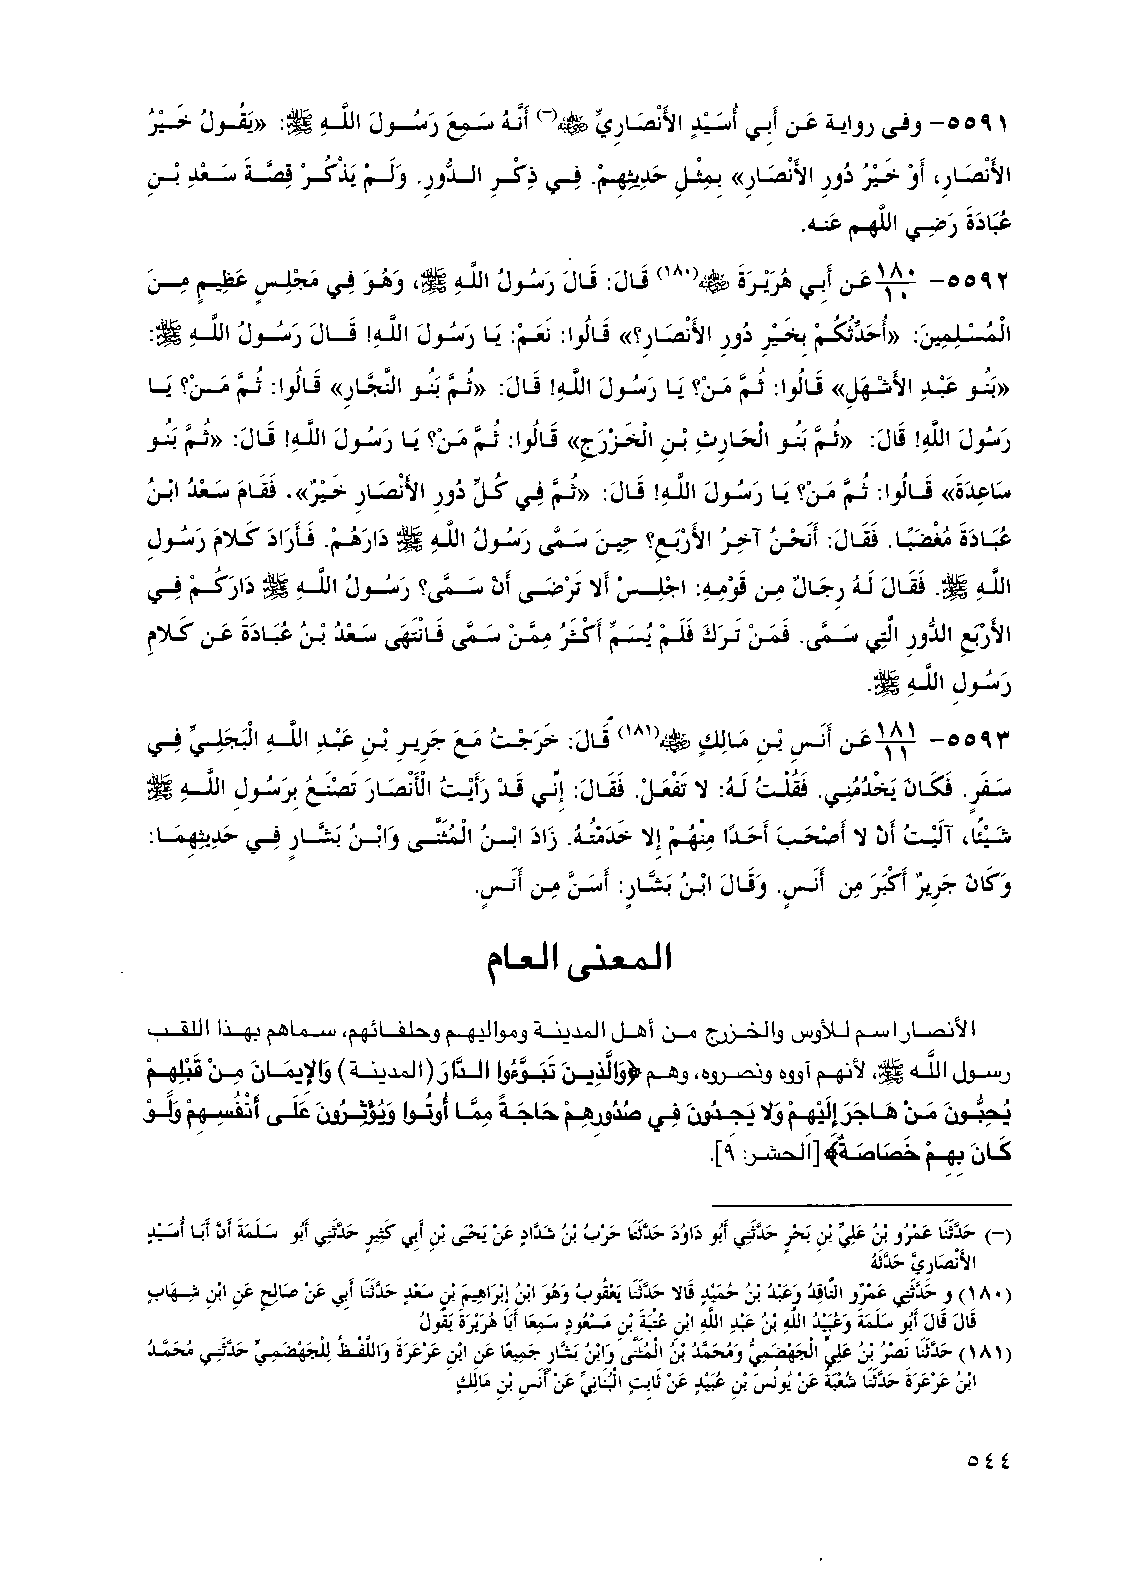 ٥٥٩١- وفى رواية عَن أَبِي أُسَيْدٍ الأَنْصَارِيِّ ﷺ(-) أَنَّهُ سَمِعَ رَسُولَ اللَّهِ ﷺ: «يَقُولُ خَيْرُ
الأَنْصَارِ، أَوْ خَيْرُ دُورِ الأَنْصَارِ» بِمِثْلِ حَدِيثِهِمْ. فِي ذِكْرِ الدُّورِ. وَلَمْ يَذْكُرْ قِصَّةَ سَعْدِ بْنِ
عُبَادَةَ رَضِي اللَّهم عَنه.
٥٥٩٢- ١٨٠/١٠ عَن أَبِي هُرَيْرَةَ ﷺ(١٨٠) قَالَ: قَالَ رَسُولُ اللَّهِ ﷺ، وَهُوَ فِي مَجْلِسٍ عَظِيمٍ مِنَ
الْمُسْلِمِينَ: «أُحَدِّثُكُمْ بِخَيْرِ دُورِ الأَنْصَارِ؟» قَالُوا: نَعَمْ: يَا رَسُولَ اللَّهِ! قَالَ رَسُولُ اللَّهِ ﷺ:
«بَنُو عَبْدِ الأَشْهَلِ» قَالُوا: ثُمَّ مَنْ؟ يَا رَسُولَ اللَّهِ! قَالَ: «ثُمَّ بَنُو النَّجَّارِ» قَالُوا: ثُمَّ مَنْ؟ يَا
رَسُولَ اللَّهِ! قَالَ: «ثُمَّ بَنُو الْحَارِثِ بْنِ الْخَزْرَجِ» قَالُوا: ثُمَّ مَنْ؟ يَا رَسُولَ اللَّهِ! قَالَ: «ثُمَّ بَنُو
سَاعِدَةَ» قَالُوا: ثُمَّ مَنْ؟ يَا رَسُولَ اللَّهِ! قَالَ: «ثُمَّ فِي كُلِّ دُورِ الأَنْصَارِ خَيْرٌ». فَقَامَ سَعْدُ ابْنُ
عُبَادَةَ مُغْضَبًا. فَقَالَ: أَنَحْنُ آخِرُ الأَرْبَعِ؟ حِينَ سَمَّى رَسُولُ اللَّهِ ﷺ دَارَهُمْ. فَأَرَادَ كَلامَ رَسُولِ
اللَّهِ ﷺ. فَقَالَ لَهُ رِجَالٌ مِن قَوْمِهِ: اجْلِسْ أَلا تَرْضَى أَنْ سَمَّى؟ رَسُولُ اللَّهِ ﷺ دَارَكُمْ فِي
الأَرْبَعِ الدُّورِ الَّتِي سَمَّى. فَمَنْ تَرَكَ فَلَمْ يُسَمِّ أَكْثَرُ مِمَّنْ سَمَّى فَانْتَهَى سَعْدُ بْنُ عُبَادَةَ عَن كَلامِ
رَسُولِ اللَّهِ ﷺ.
٥٥٩٣- ١٨١/١١ عَن أَنَسِ بْنِ مَالِكٍ ﷺ(١٨١) قَالَ: خَرَجْتُ مَعَ جَرِيرِ بْنِ عَبْدِ اللَّهِ الْبَجَلِيِّ فِي
سَفَرٍ. فَكَانَ يَخْدُمُنِي. فَقُلْتُ لَهُ: لا تَفْعَلْ. فَقَالَ: إِنِّي قَدْ رَأَيْتُ الْأَنْصَارَ تَصْنَعُ بِرَسُولِ اللَّهِ ﷺ
شَيْئًا، آلَيْتُ أَنْ لا أَصْحَبَ أَحَدًا مِنْهُمْ إِلا خَدَمْتُهُ. زَادَ ابْنُ الْمُثَنَّى وَابْنُ بَشَّارٍ فِي حَدِيثِهِمَا:
وَكَانَ جَرِيرٌ أَكْبَرَ مِن أَنَسٍ. وَقَالَ ابْنُ بَشَّارٍ: أَسَنَّ مِن أَنَسٍ.
المعنى العام
الأنصار اسم للأوس والخزرج من أهل المدينة ومواليهم وحلفائهم، سماهم بهذا اللقب
رسول اللَّه ﷺ، لأنهم آووه ونصروه، وهم ﴿وَالَّذِينَ تَبَوَّءُوا الدَّارَ (المدينة) وَالإِيمَانَ مِنْ قَبْلِهِمْ
يُحِبُّونَ مَنْ هَاجَرَ إِلَيْهِمْ وَلا يَجِدُونَ فِي صُدُورِهِمْ حَاجَةً مِمَّا أُوتُوا وَيُؤْثِرُونَ عَلَى أَنْفُسِهِمْ وَلَوْ
كَانَ بِهِمْ خَصَاصَةٌ﴾ [الحشر: ٩].
(-) حَدَّثَنَا عَمْرُو بْنُ عَلِيِّ بْنِ بَحْرٍ حَدَّثَنِي أَبُو دَاوُدَ حَدَّثَنَا حَرْبُ بْنُ شَدَّادٍ عَنْ يَحْيَى بْنِ أَبِي كَثِيرٍ حَدَّثَنِي أَبُو سَلَمَةَ أَنَّ أَبَا أُسَيْدٍ
الأَنْصَارِيَّ حَدَّثَهُ
(١٨٠) و حَدَّثَنِي عَمْرٌو النَّاقِدُ وَعَبْدُ بْنُ حُمَيْدٍ قَالا حَدَّثَنَا يَعْقُوبُ وَهُوَ ابْنُ إِبْرَاهِيمَ بْنِ سَعْدٍ حَدَّثَنَا أَبِي عَنْ صَالِحٍ عَنِ ابْنِ شِهَابٍ
قَالَ قَالَ أَبُو سَلَمَةَ وَعُبَيْدُ اللَّهِ بْنُ عَبْدِ اللَّهِ ابْنِ عُتْبَةَ بْنِ مَسْعُودٍ سَمِعَا أَبَا هُرَيْرَةَ يَقُولُ
(١٨١) حَدَّثَنَا نَصْرُ بْنُ عَلِيٍّ الْجَهْضَمِيُّ وَمُحَمَّدُ بْنُ الْمُثَنَّى وَابْنُ بَشَّارٍ جَمِيعًا عَنِ ابْنِ عَرْعَرَةَ وَاللَّفْظُ لِلْجَهْضَمِيِّ حَدَّثَنِي مُحَمَّدُ
ابْنُ عَرْعَرَةَ حَدَّثَنَا شُعْبَةُ عَنْ يُونُسَ بْنِ عُبَيْدٍ عَنْ ثَابِتٍ الْبُنَانِيِّ عَنْ أَنَسِ بْنِ مَالِكٍ
٥٤٤